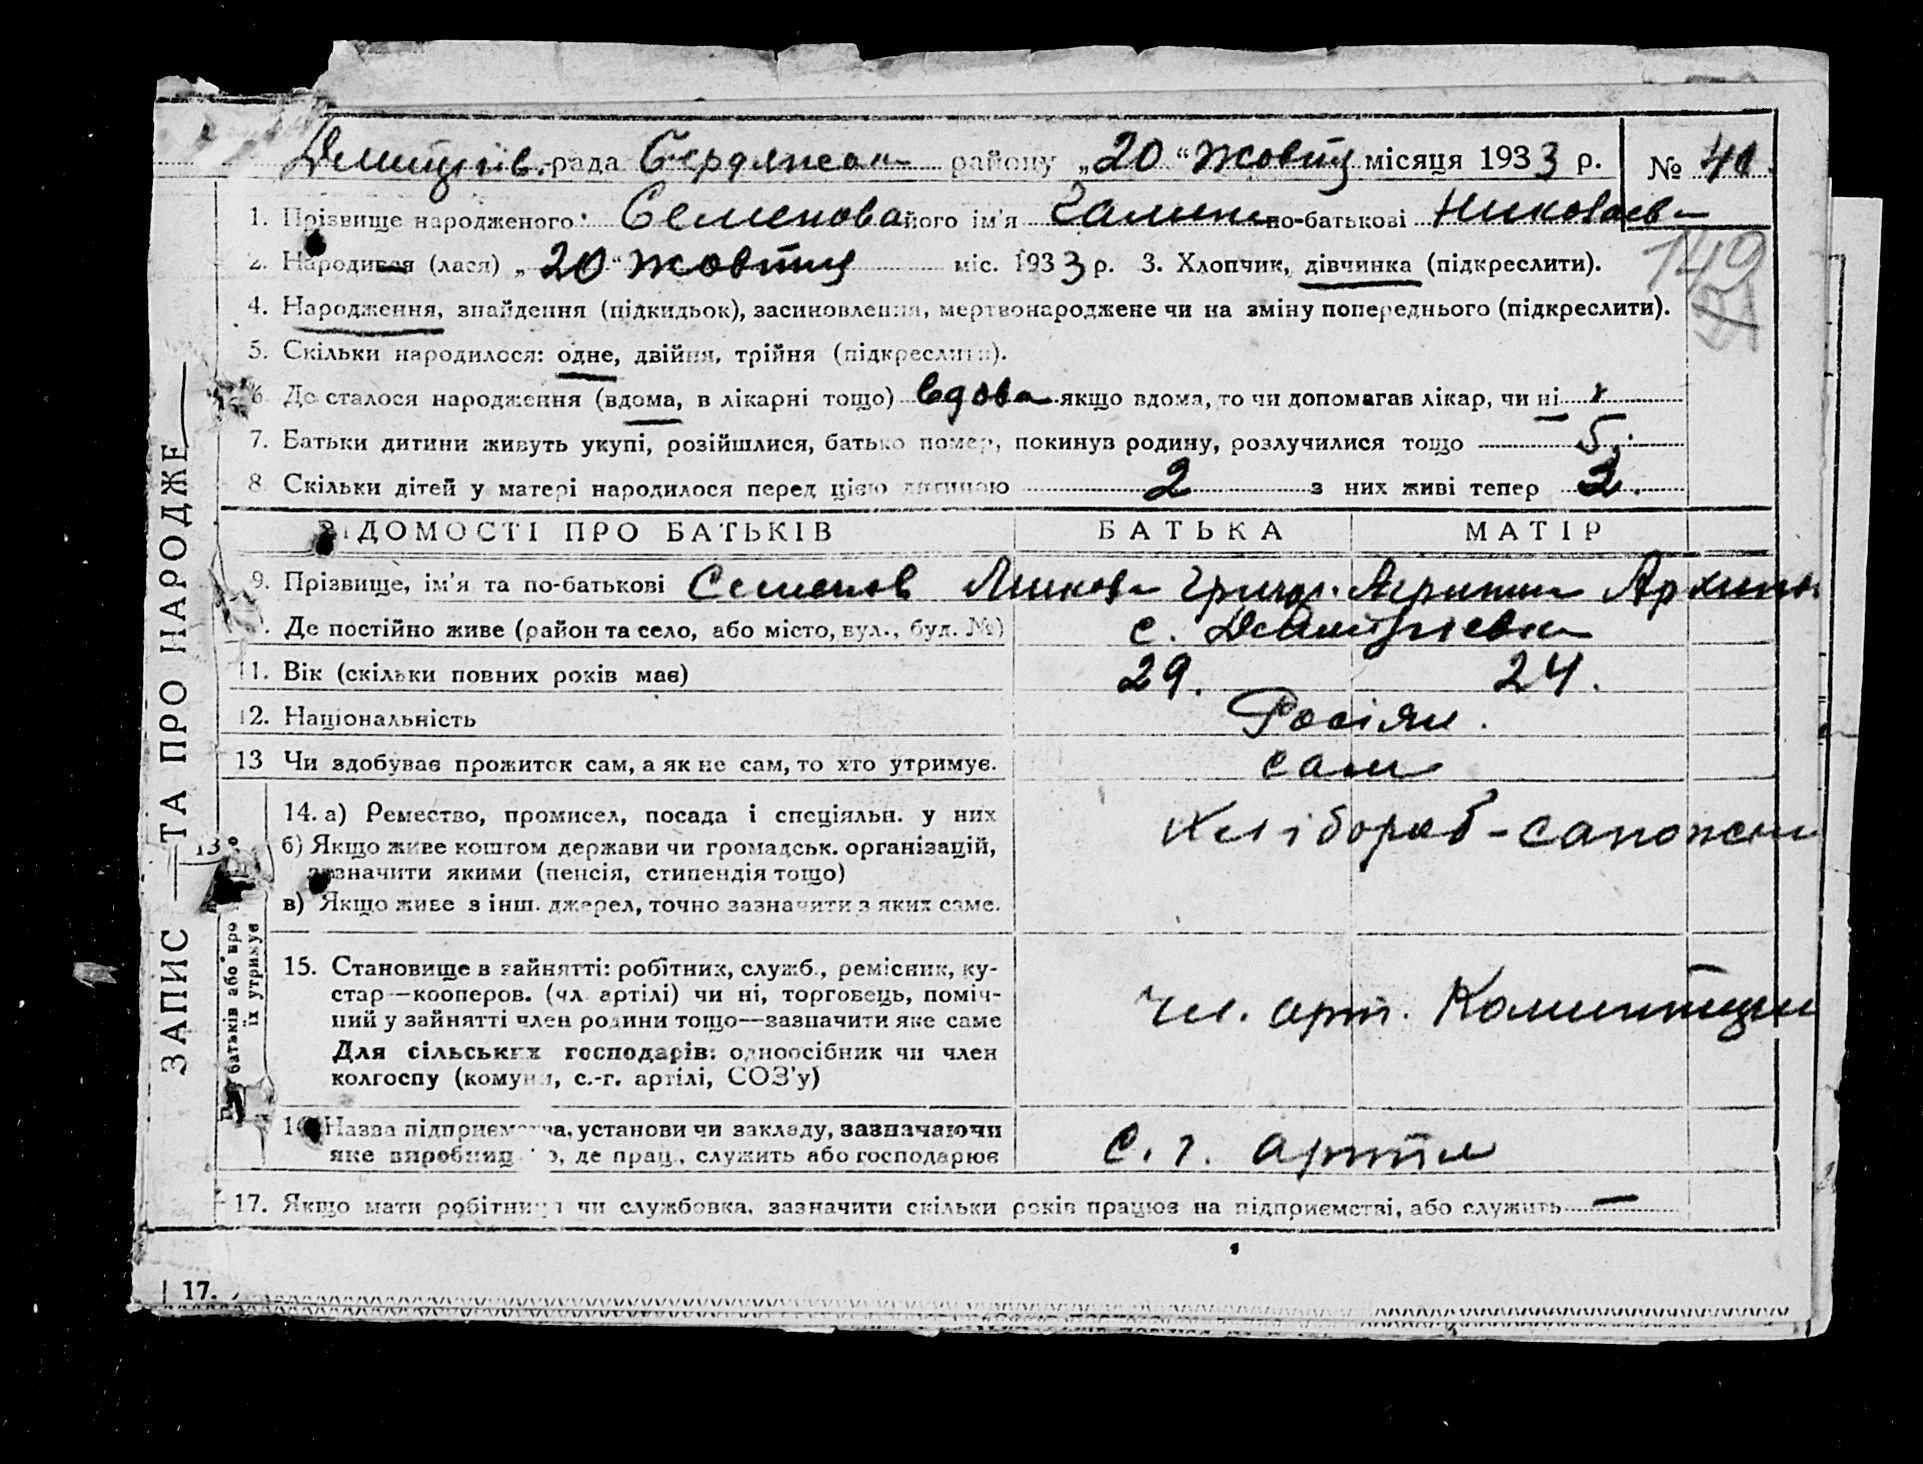 Дмитрів. рада Бердянськ району „20“ Жовтня місяця 1933 р. № 40.
1. Прізвище народженого: Семенова його ім'я Галина по-батькові Николаев
2. Народився (лася) „20“ Жовтня міс. 1933 р. 3. Хлопчик, дівчинка (підкреслити).
149
4. Народження, знайдення (підкидьок), засиновлення, мертвонароджене чи на зміну попереднього (підкреслити).
5. Скільки народилося: одне, двійня, трійня (підкреслити).
6. Де сталося народження (вдома, в лікарні тощо) вдома якщо вдома, то чи допомагав лікар, чи ні
7. Батьки дитини живуть укупі, розійшлися, батько помер, покинув родину, розлучилися тощо
8. Скільки дітей у матері народилося перед цією дитиною 2 з них живі тепер 2.
ВІДОМОСТІ ПРО БАТЬКІВ БАТЬКА МАТІР
9. Прізвище, ім'я та по-батькові Семенов Григор. Архип
. Де постійно живе (район та село, або місто, вул., буд. №) с. Дмитрієвка
11. Вік (скільки повних років має) 29. 24.
12. Національність Росіян.
13 Чи здобуває прожиток сам, а як не сам, то хто утримує. сам
14. а) Ремество, промисел, посада і спеціяльн. у них
хлібороб - сапожн
б) Якщо живе коштом держави чи громадськ. організацій,
зазначити якими (пенсія, стипендія тощо)
в) Якщо живе з інш. джерел, точно зазначити з яких саме.
15. Становище в зайнятті: робітник, служб., ремісник, ку-
стар—кооперов. (чл. артілі) чи ні, торговець, поміч-
чл. арт.
ний у зайнятті член родини тощо—зазначити яке саме
Для сільських господарів: одноосібник чи член
колгоспу (комуни, с.-г. артілі, СОЗ'у)
16. Назва підприємства, установи чи закладу, зазначаючи
яке виробниц о, де прац., служить або господарює с. г. артіл
17. Якщо мати робітниця чи службовка, зазначити скільки років працює на підприємстві, або служить —
ЗАПИС — ТА ПРО НАРОДЖЕ
13
батьків або про
їх утримує
17.